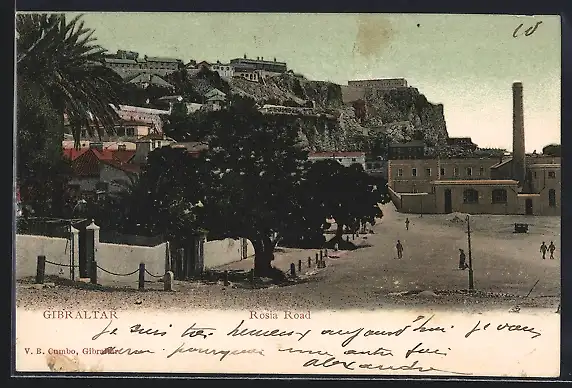 10
GIBRALTAR Rosia Road
Je suis très heureux aujourd'hui. je vous
V. B. Cumbo, Gibraltar
pourquoi une autre fois
alexandre